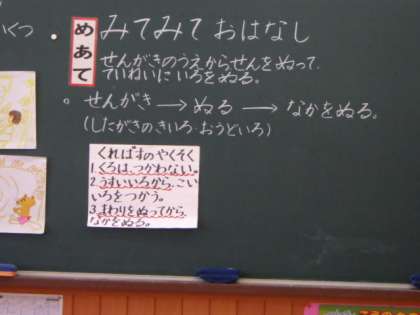 いくつ
めあて
みてみて おはなし
せんがきのうえからせんをぬって、
ていねいにいろをぬる。
○ せんがき → ぬる → なかをぬる。
(したがきのきいろ・おうどいろ)
くれぱすのやくそく
1.くろは、つかわない。
2.うすいいろから、こい
いろをつかう。
3.まわりをぬってから、
なかをぬる。